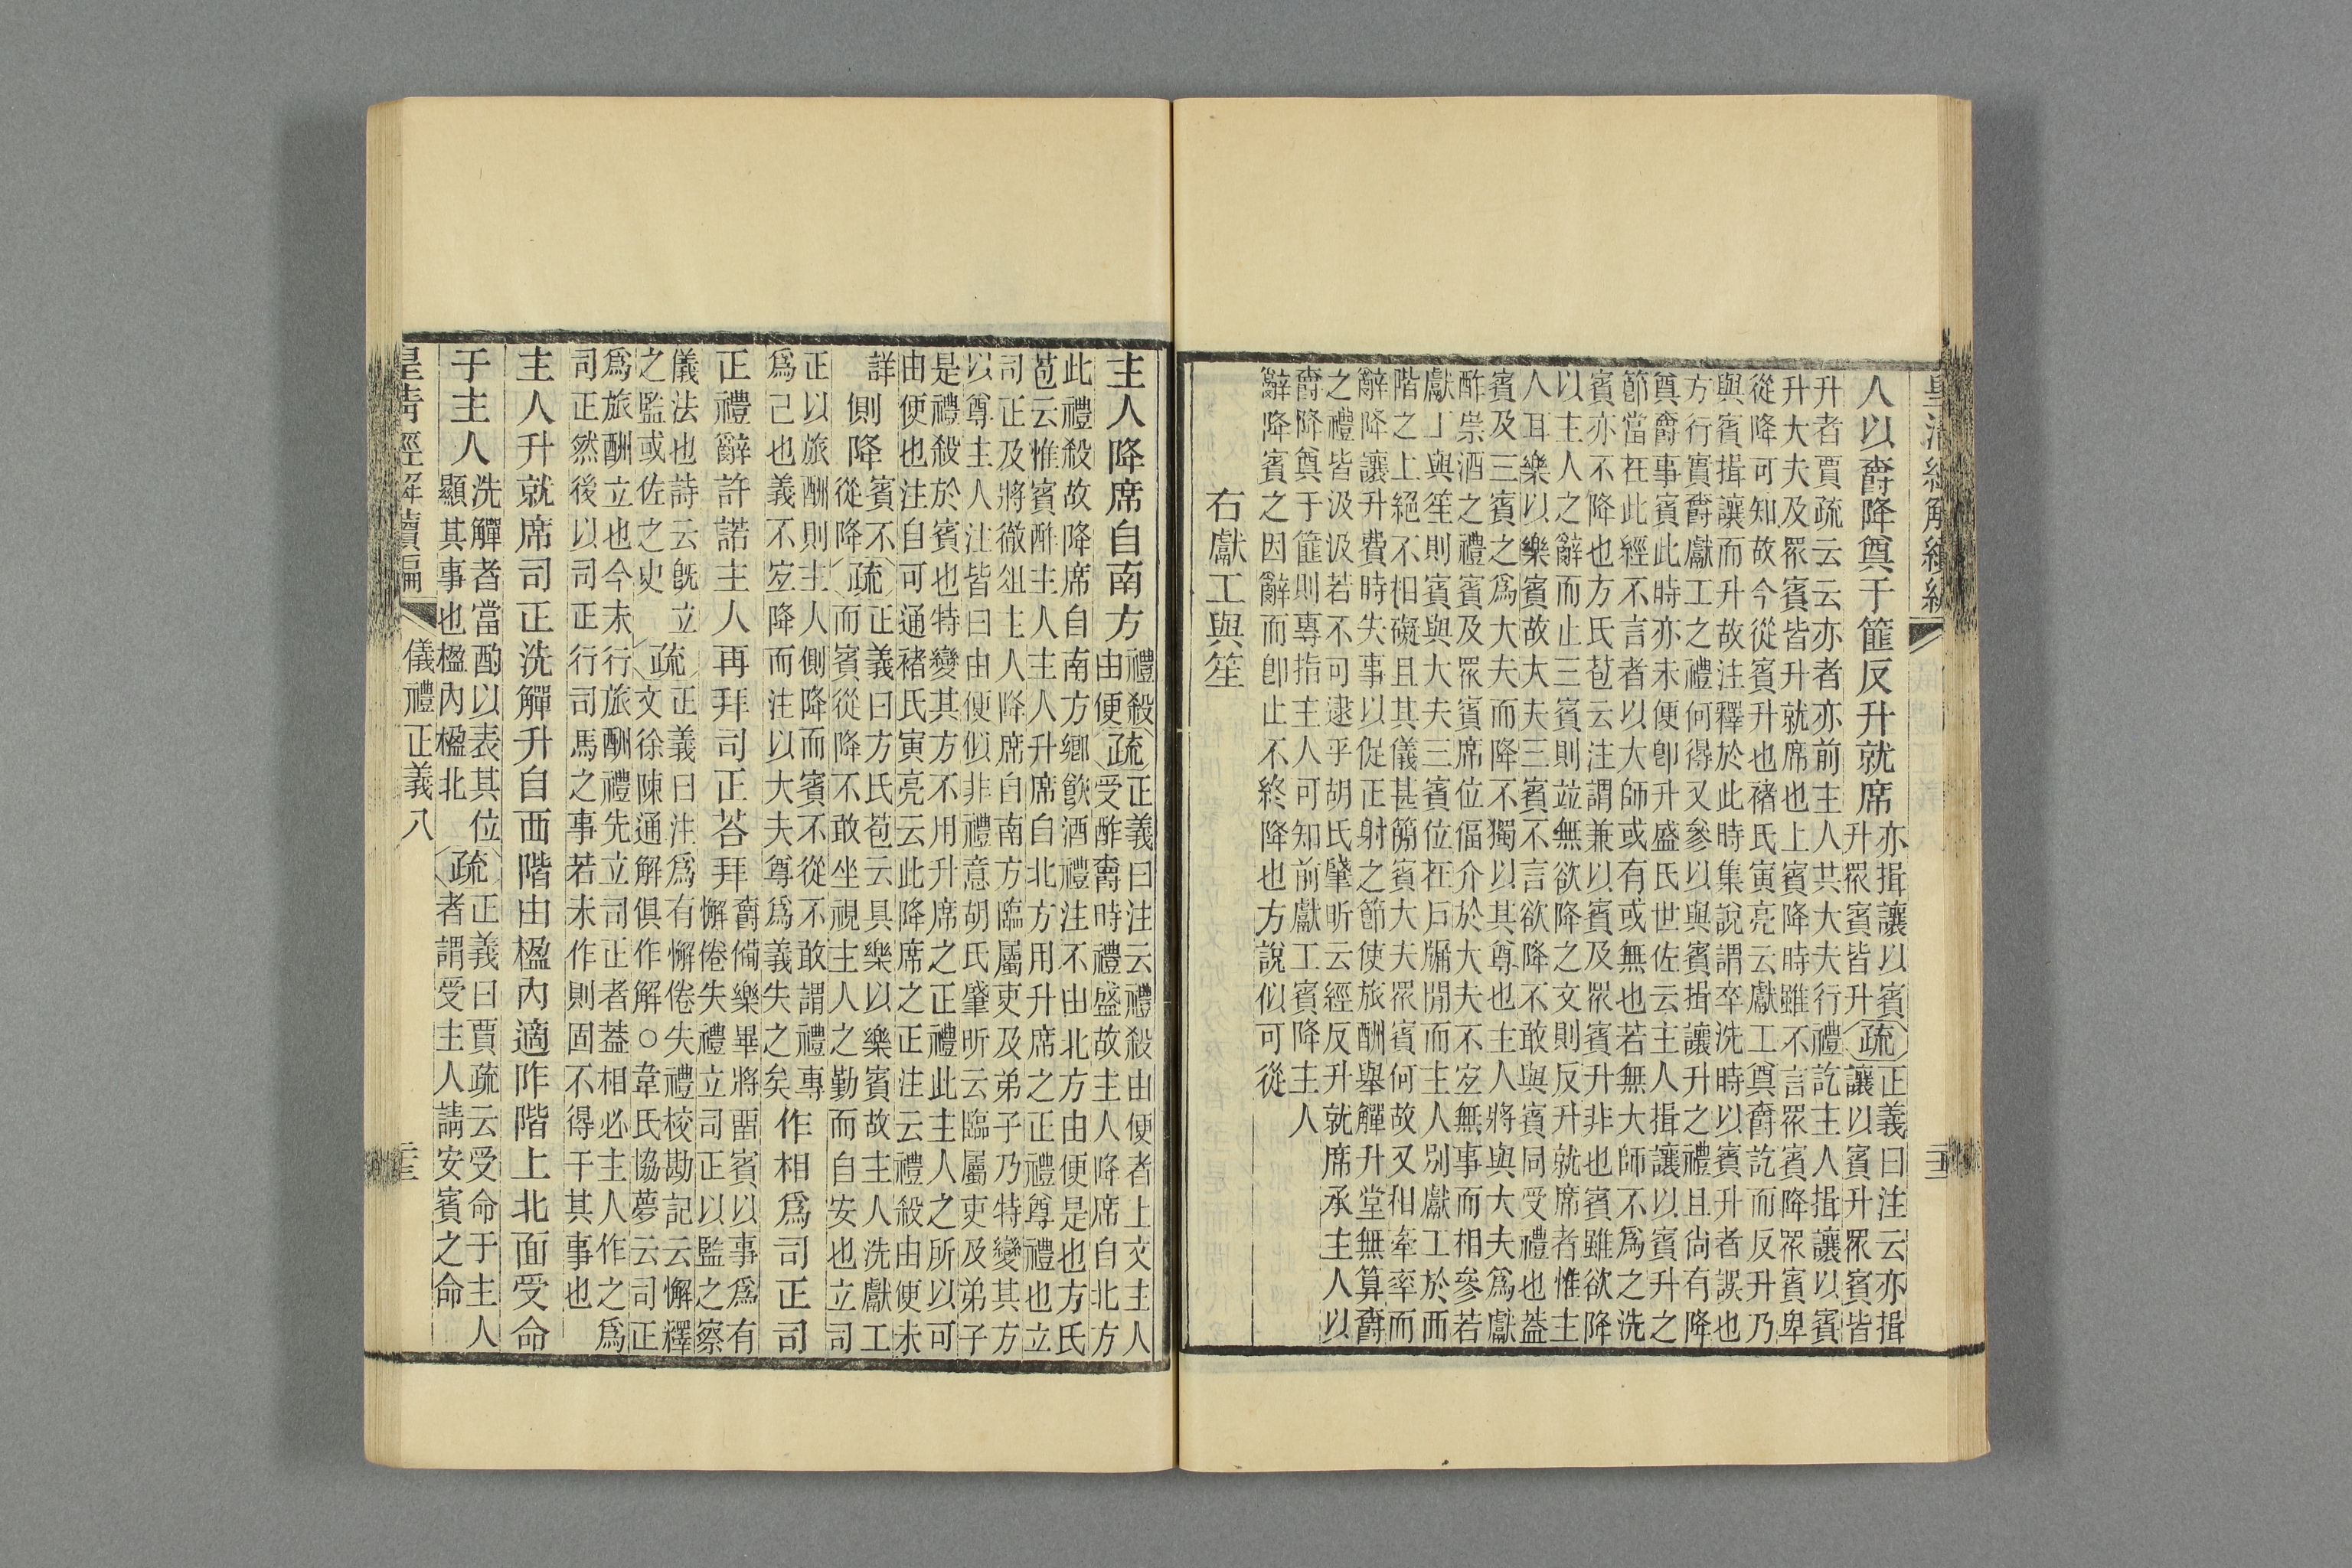 人以爵降奠于篚反升就席
亦揖讓以賓
升眾賓皆升
疏
正義曰注云亦揖
讓以賓升眾賓皆
升者賈疏云云亦者亦前主人共大夫行禮訖主人揖讓以賓
升大夫及眾賓皆升就席也上賓降時雖不言眾賓降眾賓卑
從降可知故今從賓升也褚氏寅亮云獻工奠爵訖而反升乃
與賓揖讓而升故注釋於此時集說謂卒洗時以賓升者誤也
方行實爵獻工之禮何得又參以與賓揖讓升之禮且尚有降
奠爵事賓此時亦未便卽升盛氏世佐云主人揖讓以賓升之
節當在此經不言者以大師或有或無也若無大師不爲之洗
賓亦不降也方氏苞云注謂兼以賓及眾賓升非也賓雖欲降
以主人之辭而止三賓則竝無欲降之文則反升就席者惟主
人耳樂以樂賓故大夫三賓不言欲降不敢與賓同受禮也蓋
賓及三賓之爲大夫而降不獨以其尊也主人將與大夫爲獻
酢祟酒之禮賓及眾賓席位偪介於大夫不宐無事而相參若
獻工與笙則賓與大夫三賓位在戶牖閒而主人別獻工於西
階之上絕不相礙且其儀甚簡賓大夫眾賓何故又相牽率而
辭降讓升費時失事以促正射之節使旅酬舉觶升堂無算爵
之禮皆汲汲若不可逮乎胡氏肇昕云經反升就席承主人以
爵降奠于篚則專指主人可知前獻工賓降主人
辭降賓之因辭而卽止不終降也方說似可從
右獻工與笙
主人降席自南方
禮殺
由便
疏
正義曰注云禮殺由便者上文主人
受酢爵時禮盛故主人降席自北方
此禮殺故降席自南方鄉飮酒禮注不由北方由便是也方氏
苞云惟賓酢主人主人升席自北方用升席之正禮尊禮也立
司正及將徹俎主人降席自南方臨屬吏及弟子乃特變其方
以尊主人注皆曰由便似非禮意胡氏肇昕云臨屬吏及弟子
是禮殺於賓也特變其方不用升席之正禮此主人之所以可
由便也注自可通褚氏寅亮云此降席之正注云禮殺由便未
詳
側降
賓不
從降
疏
正義曰方氏苞云具樂以樂賓故主人洗獻工
而賓從降不敢坐視主人之勤而自安也立司
正以旅酬則主人側降而賓不從不敢謂禮專
爲己也義不宐降而注以大夫尊爲義失之矣
作相爲司正司
正禮辭許諾主人再拜司正荅拜
爵備樂畢將畱賓以事爲有
懈倦失禮立司正以監之察
儀法也詩云旣立
之監或佐之史
疏
正義曰注爲有懈倦失禮校勘記云懈釋
文徐陳通解俱作解○韋氏協夢云司正
爲旅酬立也今未行旅酬禮先立司正者蓋相必主人作之爲
司正然後以司正行司馬之事若未作則固不得干其事也
主人升就席司正洗觶升自西階由楹內適阼階上北面受命
于主人
洗觶者當酌以表其位
顯其事也楹內楹北
疏
正義曰賈疏云受命于主人
者謂受主人請安賓之命
皇淸經解續編
儀禮正義八